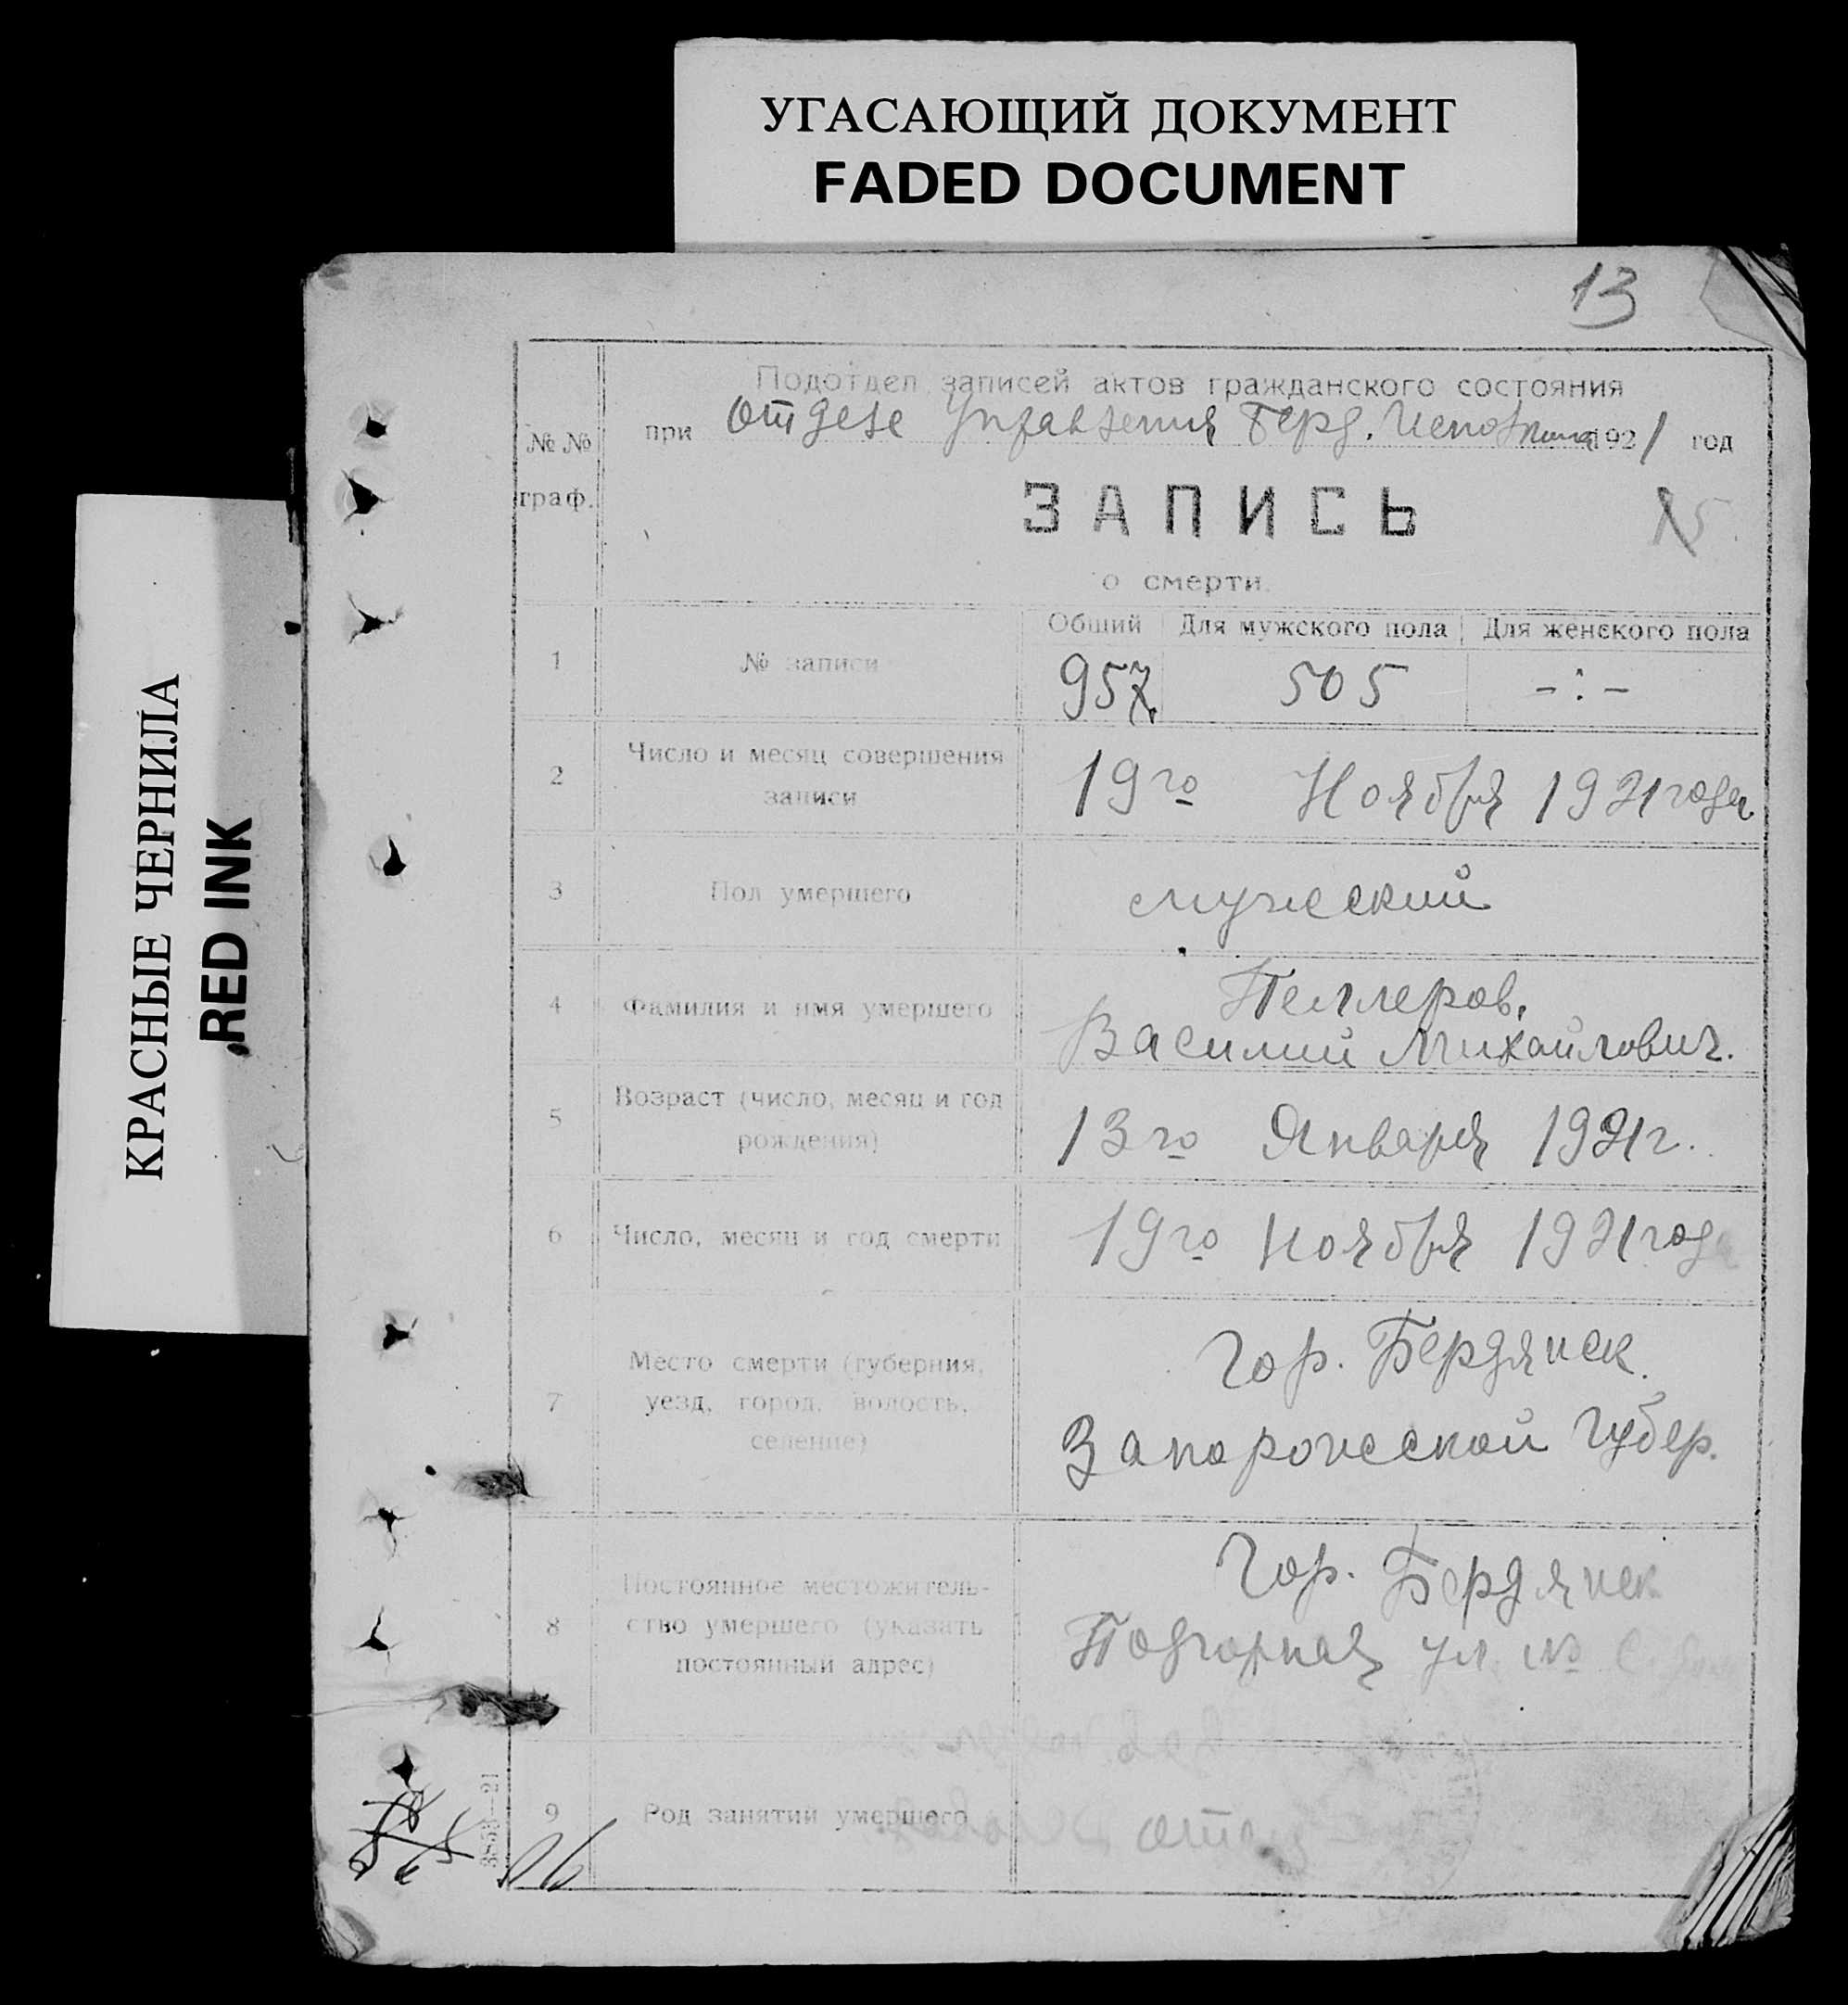 УГАСАЮЩИЙ ДОКУМЕНТ
FADED DOCUMENT
КРАСНЫЕ ЧЕРНИЛА
RED INK
13
Подотдел записей актов гражданского состояния
№№ граф.
при Отделе Управления Берд. 1921 год
ЗАПИСЬ
о смерти.
Общий Для мужского пола Для женского пола
1 № записи 957 505 -:-
2 Число и месяц совершения
записи
19го Ноября 1921 года
3 Пол умершего мужеский
4 Фамилия и имя умершего
Теллеров,
Василий Михайлович.
5 Возраст (число, месяц и год
рождения)
13го Января 1921г.
6 Число, месяц и год смерти 19го Ноября 1921 года
7 Место смерти (губерния,
уезд, город, волость,
селение)
Гор. Бердянск.
Запорожеской Губер.
8 Постоянное местожитель-
ство умершего (указать
постоянный адрес)
Гор. Бердянск
Подгорная ул. №
9 Род занятий умершего отец
3853—21